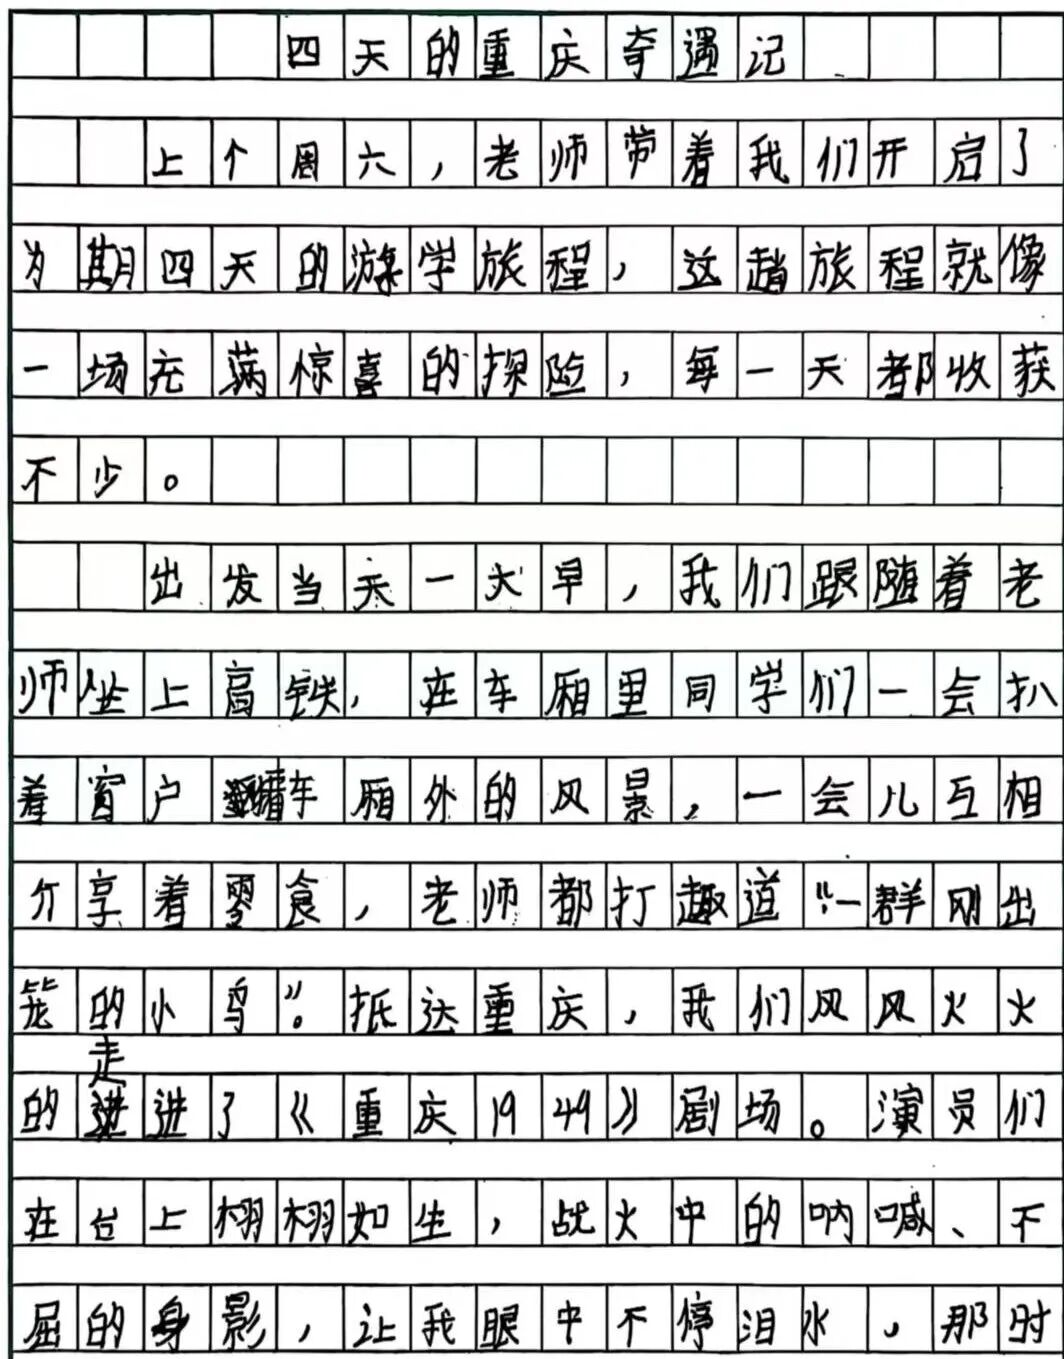 四天的重庆奇遇记
上个周六，老师带着我们开启了
为期四天的游学旅程，这趟旅程就像
一场充满惊喜的探险，每一天都收获
不少。
出发当天一大早，我们跟随着老
师坐上高铁，在车厢里同学们一会扒
着窗户车厢外的风景，一会儿互相
分享着零食，老师都打趣道“一群刚出
笼的小鸟”。抵达重庆，我们风风火火
的走进了《重庆1949》剧场。演员们
在台上栩栩如生，战火中的呐喊、不
屈的身影，让我眼中不停泪水，那时